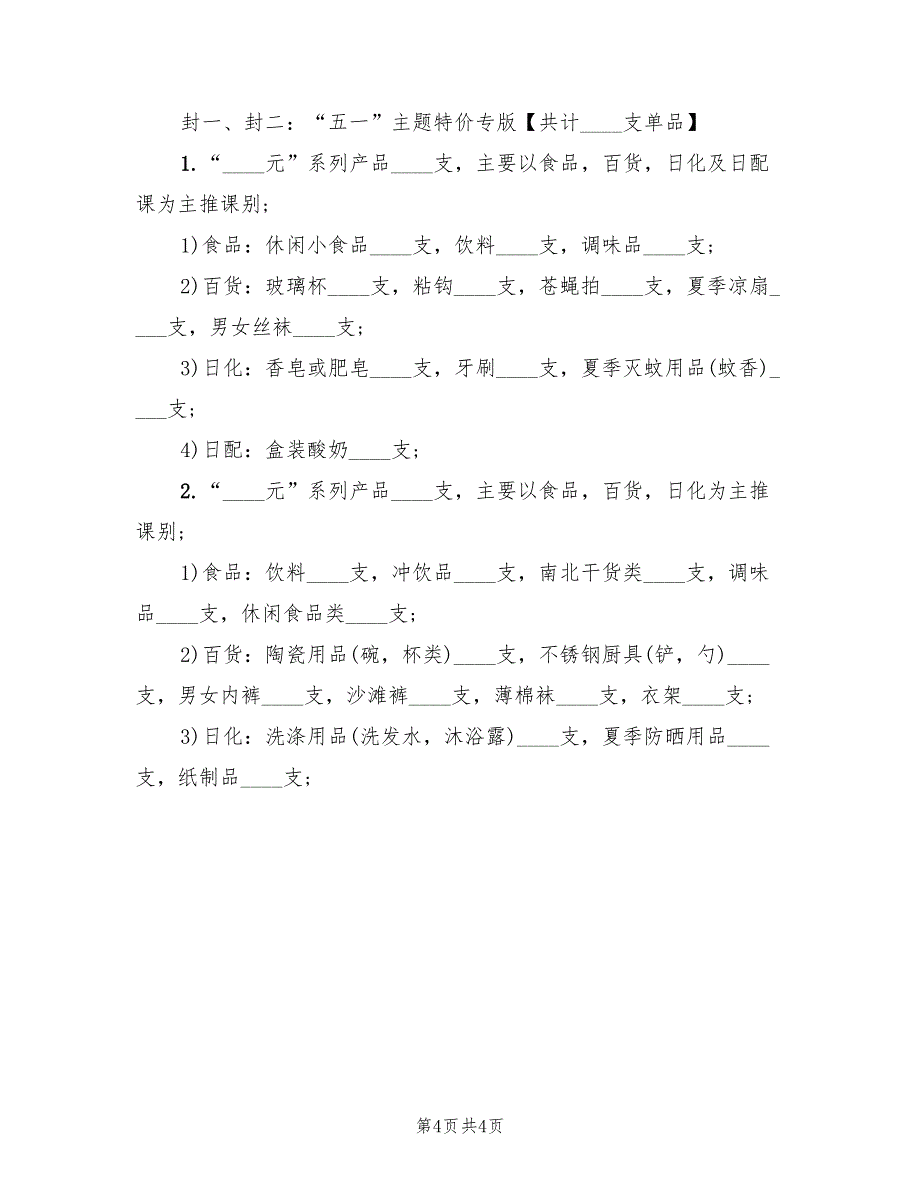 封一、封二：“五一”主题特价专版【共计____支单品】
1.“____元”系列产品____支，主要以食品，百货，日化及日配
课为主推课别;
1)食品：休闲小食品____支，饮料____支，调味品____支;
2)百货：玻璃杯____支，粘钩____支，苍蝇拍____支，夏季凉扇_
___支，男女丝袜____支;
3)日化：香皂或肥皂____支，牙刷____支，夏季灭蚊用品(蚊香)_
___支;
4)日配：盒装酸奶____支;
2.“____元”系列产品____支，主要以食品，百货，日化为主推
课别;
1)食品：饮料____支，冲饮品____支，南北干货类____支，调味
品____支，休闲食品类____支;
2)百货：陶瓷用品(碗，杯类)____支，不锈钢厨具(铲，勺)____
支，男女内裤____支，沙滩裤____支，薄棉袜____支，衣架____支;
3)日化：洗涤用品(洗发水，沐浴露)____支，夏季防晒用品____
支，纸制品____支;
第4页 共4页